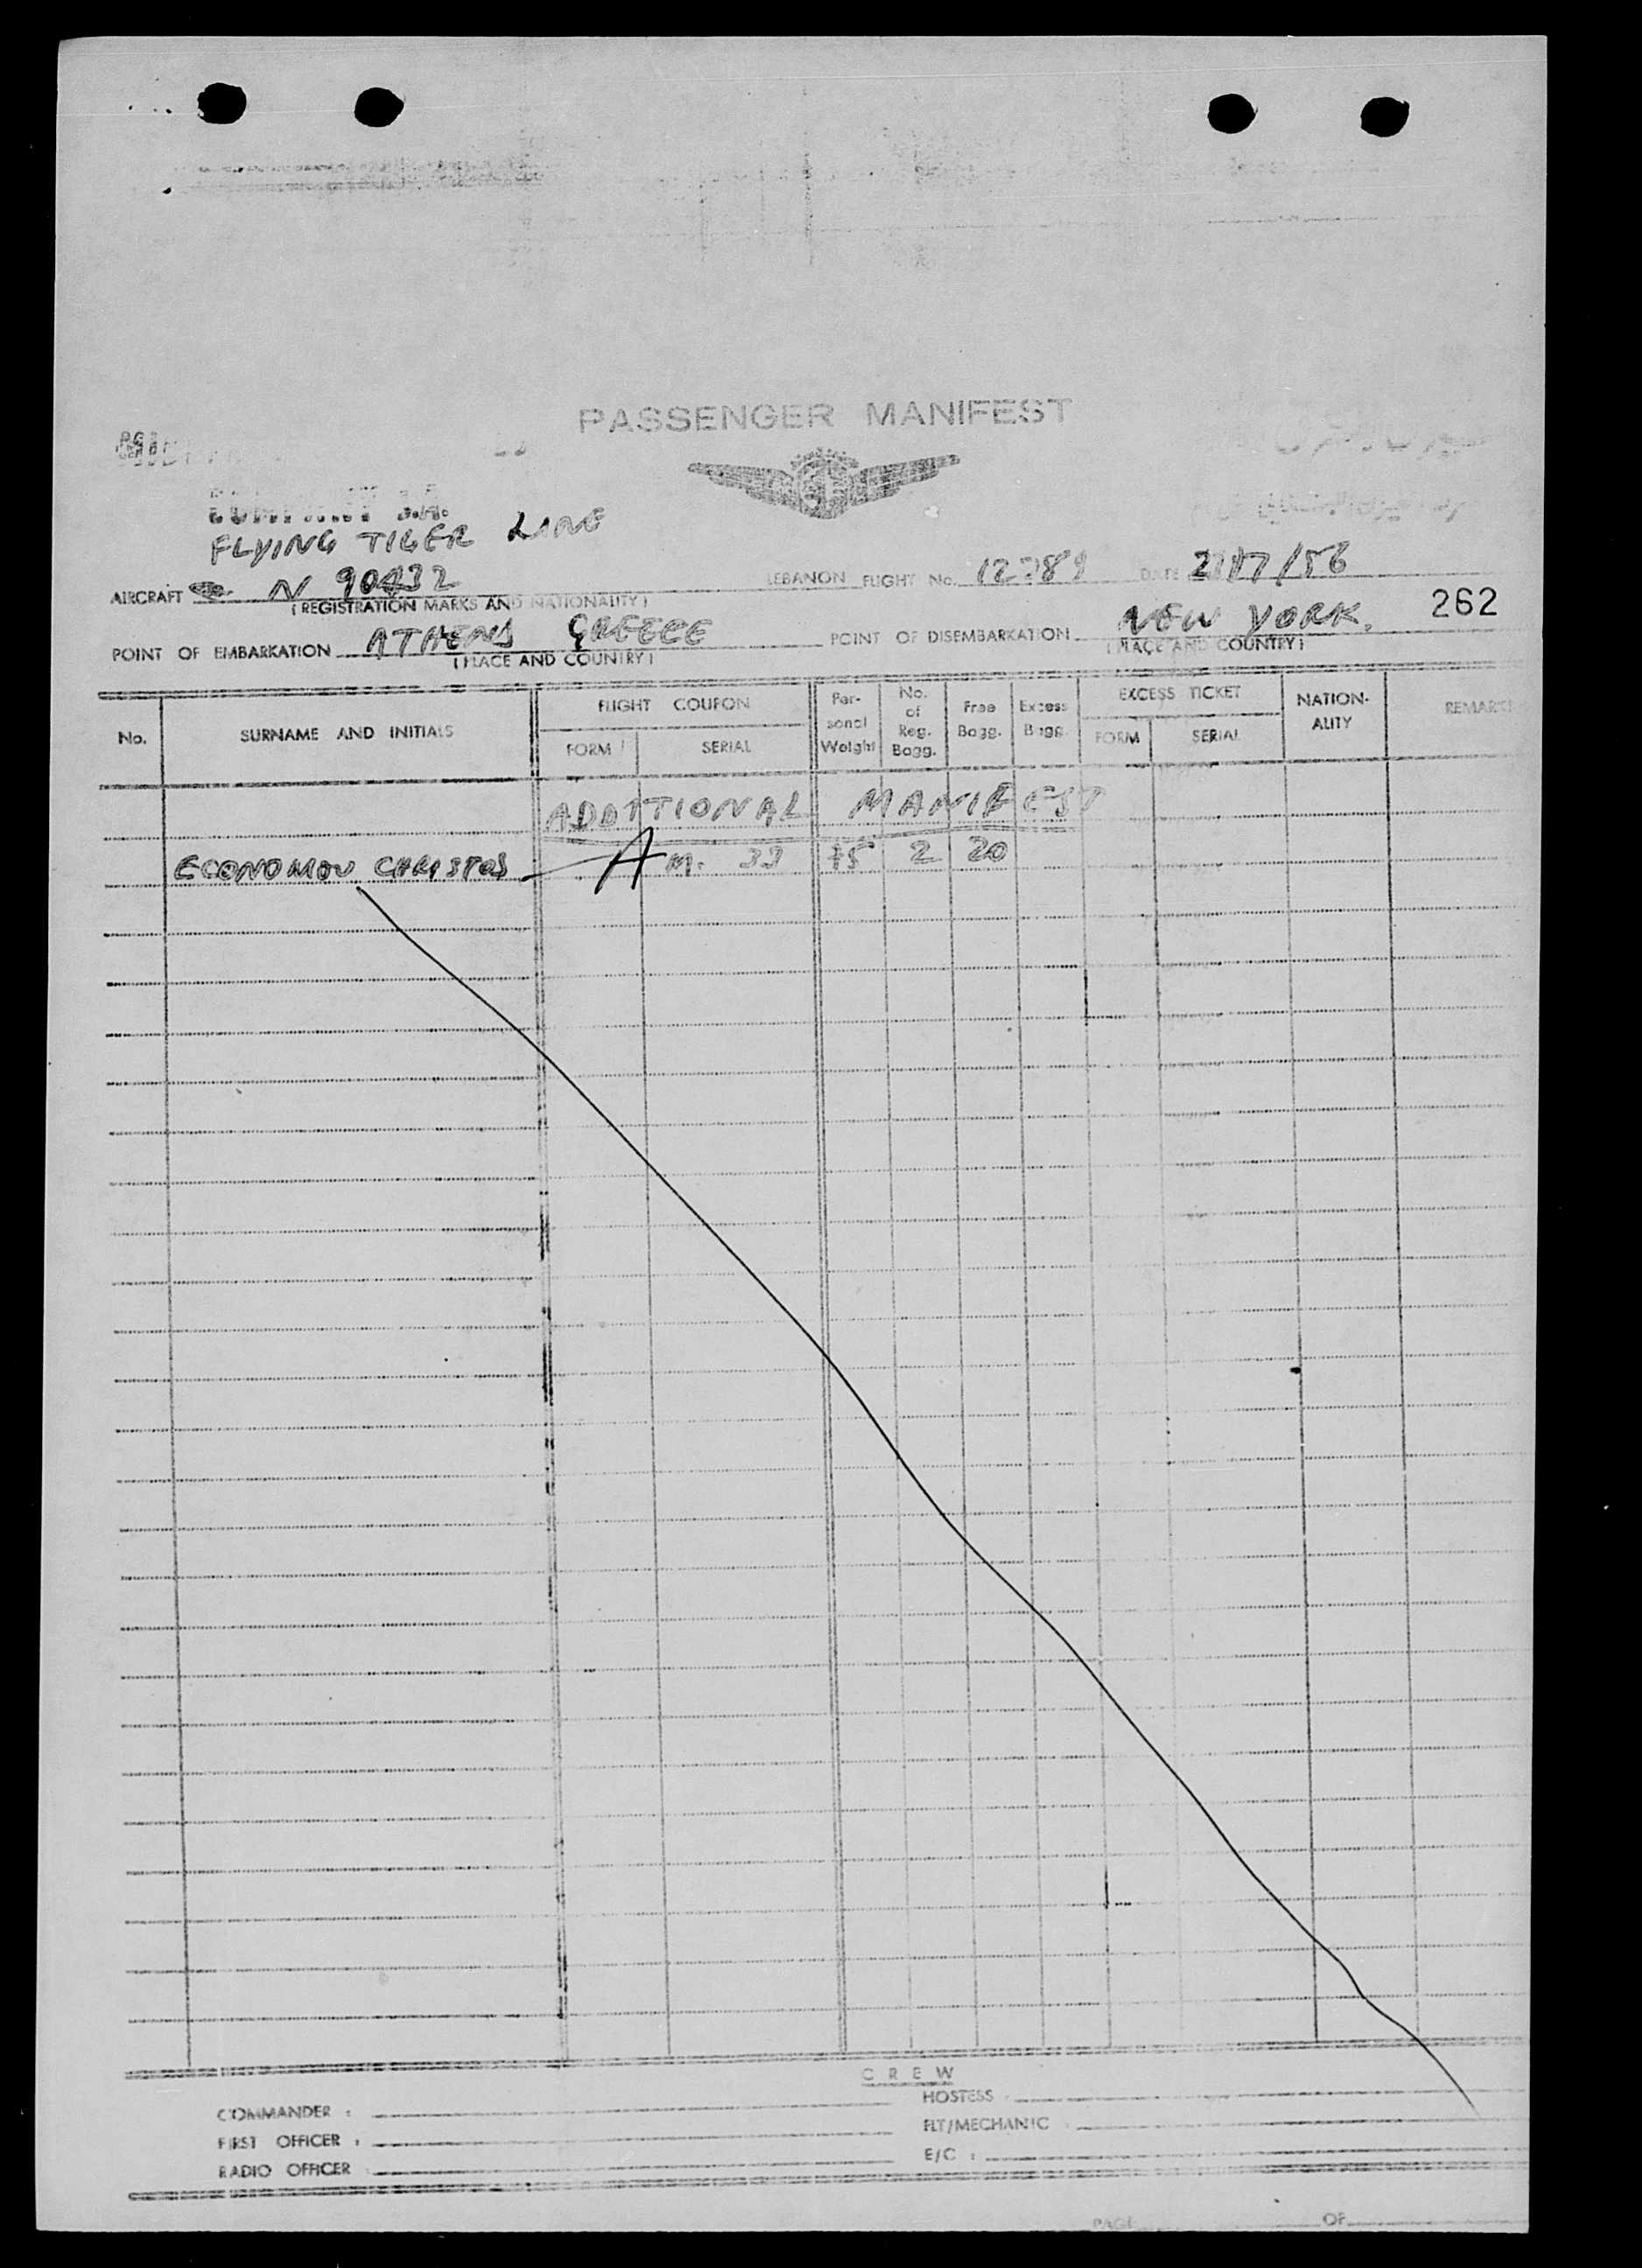 PASSENGER MANIFEST
COMPANY S.A.
FLYING TIGER LINE
AIRCRAFT N 90432 LEBANON FLIGHT No. DATE /56
(REGISTRATION MARKS AND NATIONALITY)
262
POINT OF EMBARKATION ATHENS GREECE POINT OF DISEMBARKATION NEW YORK.
(PLACE AND COUNTRY) (PLACE AND COUNTRY)
No. SURNAME AND INITIALS FLIGHT COUPON FORM SERIAL Per-sonal Weight No. of Reg. Bagg. Free Bagg. Excess Bagg. EXCESS TICKET FORM SERIAL NATION-ALITY REMARKS
ADDITIONAL MANIFEST
ECONOMOU CHRISTOS A M. 33 75 2 20
CREW
COMMANDER : HOSTESS
FIRST OFFICER : FLT/MECHANIC
RADIO OFFICER E/C :
PAGE OF